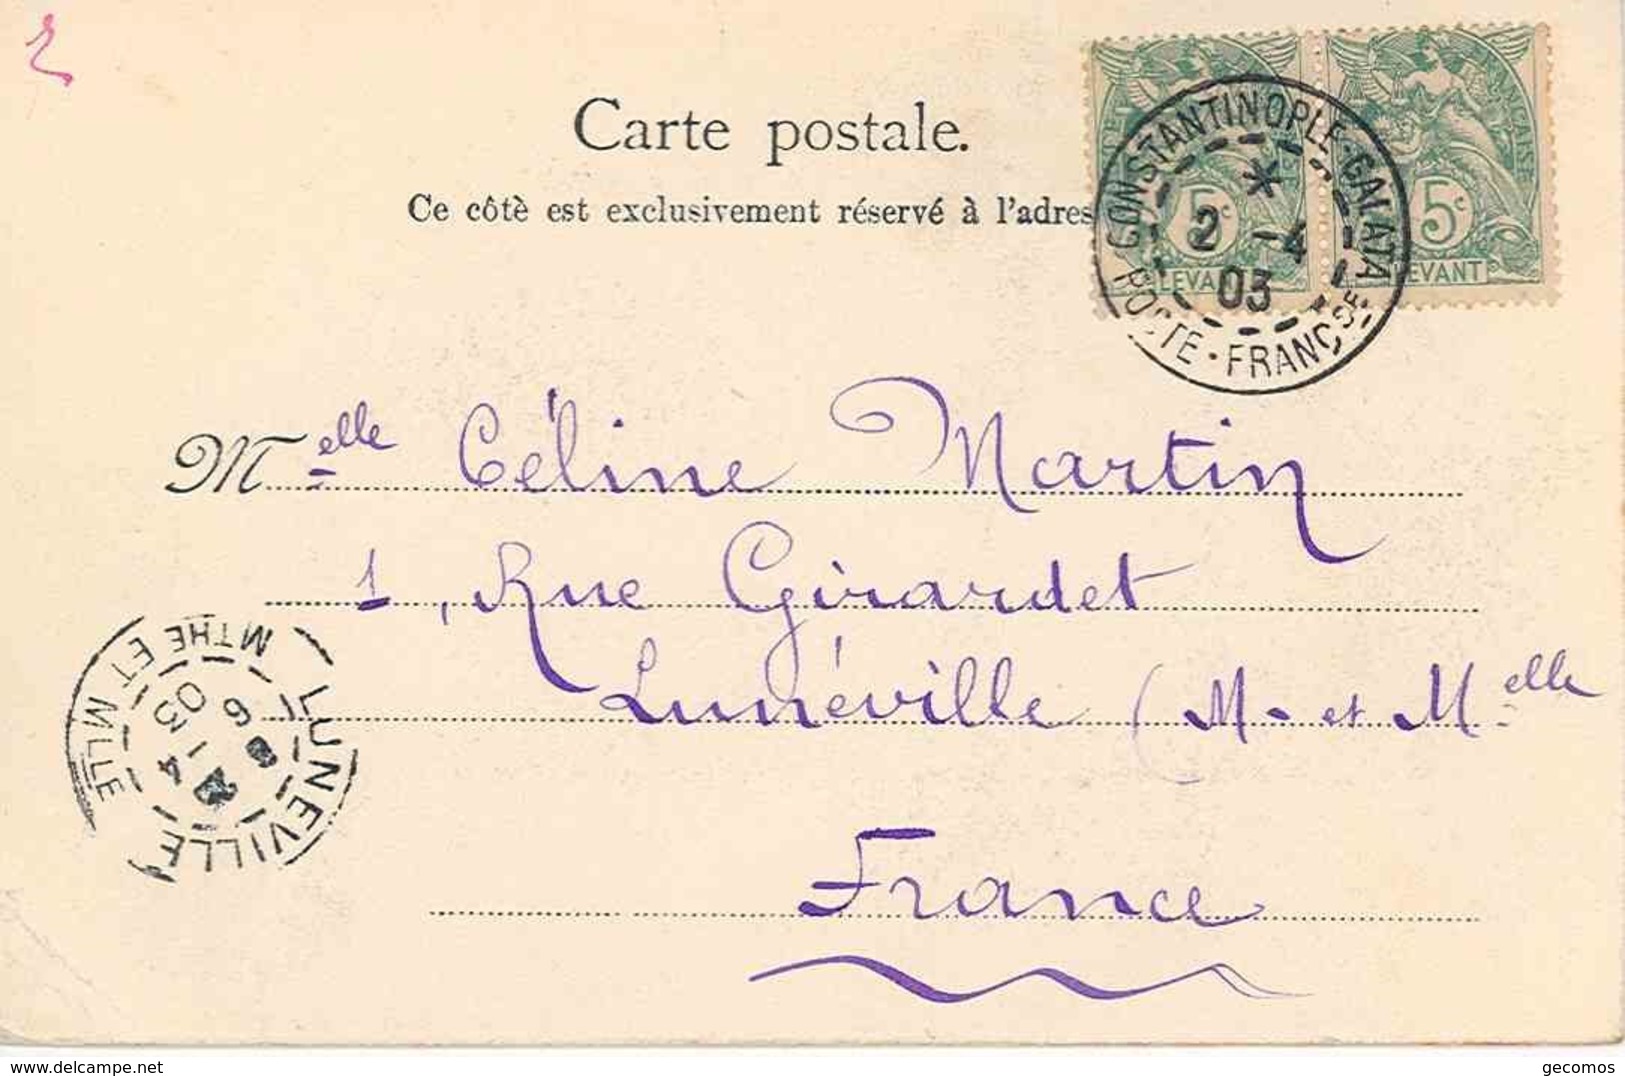 Carte postale.
Ce côtè est exclusivement réservé à l'adres
CONSTANTINOPLE-GALATA
2 -4
03
POSTE · FRANÇSE
FRANÇAISE
5c
5c
LEVANT
LEVANT
Melle Céline Martin
1, Rue Girardet
Lunéville (M. et Melle
France
LUNEVILLE
6
-4
03
MTHE ET MLLE
gecomos